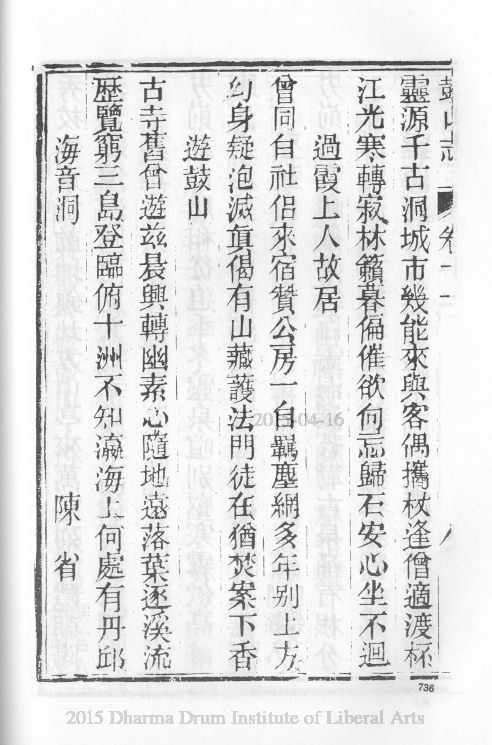 鼓山志 卷十二 八
靈源千古洞城市幾能來與客偶攜杖逢僧適渡杯
江光寒轉寂林籟暮偏催欲何忘歸石安心坐不迴
過霞上人故居
曾同白社侶來宿贊公房一自羈塵網多年別上方
幻身疑泡滅眞偈有山藏護法門徒在猶焚案下香
遊鼓山
古寺舊曾遊茲晨興轉幽素心隨地遠落葉逐溪流
歷覽窮三島登臨俯十洲不知瀛海上何處有丹邱
海音洞 陳省
736
2015-04-16
2015 Dharma Drum Institute of Liberal Arts